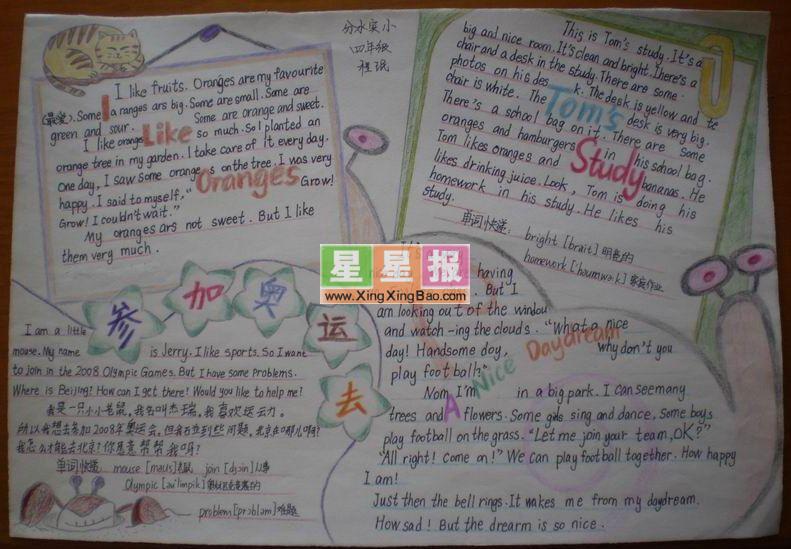 分水实小
四年级
I Like Oranges
I like fruits. Oranges are my favourite
(最爱). Some aranges ars big. Some are small. Some are
green and sour. Some are orange and sweet.
I like orange so much. So I planted an
orange tree in my garden. I take care of it every day.
One day, I saw Some oranges on the tree. I was very
happy. I said to myself, " Grow!
Grow! I couldn't wait."
My oranges ars not sweet. But I like
them very much.
Tom's Study
This is Tom's study. It's a
big and nice room. It's clean and bright. There's a
chair and a desk in the study. There are some
photos on his desk. The desk is yellow and te
chair is white. The desk is very big.
There's a school bag on it. There are some
oranges and hamburgers in his school bag.
Tom likes oranges and bananas. He
likes drinking juice. Look, Tom is doing his
homework in his study. He likes his
study.
单词快递: bright [brait] 明亮的
homework [houmwə:k] 家庭作业
星星报
www.XingXingBao.com
参加奥运去
I am a little
mouse. My name is Jerry. I like sports. So I want
to join in the 2008 Olympic Games. But I have some problems.
Where is Beijing? How can I get there? Would you like to help me?
我是一只小老鼠,我名叫杰瑞。我喜欢运动。
所以我想去参加2008年奥运会。但我否些问题。北京在哪儿呀?
我怎么才能去北京?你愿意帮帮我吗?
单词快递: mouse [maus] 鼠 join [dʒɔin] 从事
Olympic [əu'limpik]
problem [prɔbləm] 难题
A Nice Daydream
It's
having
. But I
am looking out of the windou
and watch-ing the clouds. "What a nice
day! Handsome doy, why don't you
play football?"
Nom I'm in a big park. I can see many
trees and flowers. Some girls sing and dance. Some boys
play football on the grass. "Let me join your team, OK?"
"All right! Come on!" We can play football together. How happy
I am!
Just then the bell rings. It wakes me from my daydream.
How sad! But the drearm is so nice.